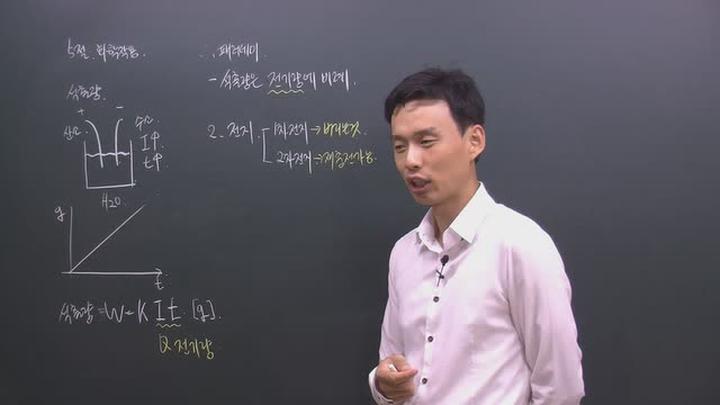 5절. 화학작용.
석출량.
+ -
산소
수소
I↑
t↑
H2O
g
t
석출량 = W = K I t [g]
Q 전기량
∴ 패러데이.
- 석출량은 전기량에 비례.
2. 전지
1차전지 →
2차전지 → 재충전가능.